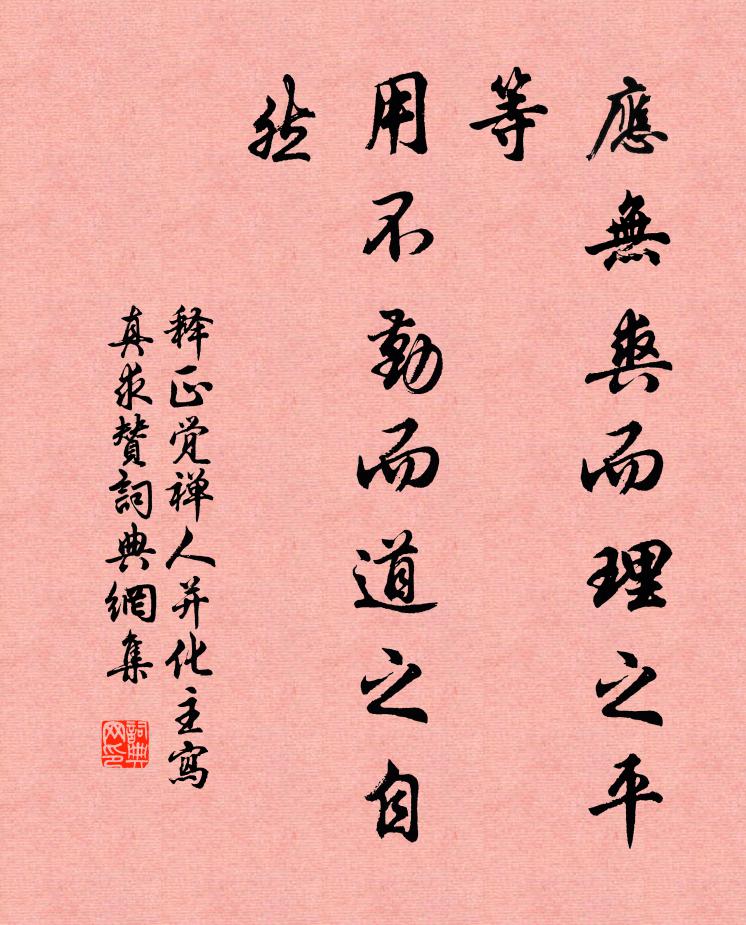 應無爽而理之平
等
用不勤而道之自
然
释正觉禅人并化主寫
真求赞詞典網集
詞典
网印